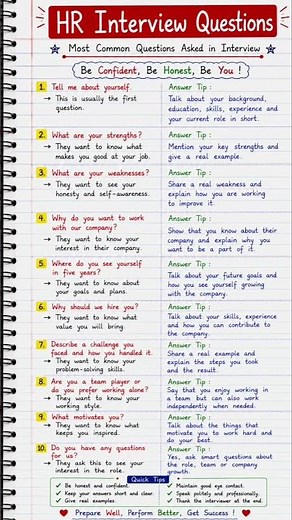 HR Interview Questions
Most Common Questions Asked in Interview
Be Confident, Be Honest, Be You !
1. Tell me about yourself.
→ This is usually the first
question.
Answer Tip :
Talk about your background,
education, skills, experience and
your current role in short.
2. What are your strengths?
→ They want to know what
makes you good at your job.
Answer Tip :
Mention your key strengths and
give a real example.
3. What are your weaknesses?
→ They want to see your
honesty and self-awareness.
Answer Tip :
Share a real weakness and
explain how you are working
to improve it.
4. Why do you want to work
with our company?
→ They want to know your
interest in their company.
Answer Tip :
Show that you know about their
company and explain why you
want to be a part of it.
5. Where do you see yourself
in five years?
→ They want to know about
your goals and plans.
Answer Tip :
Talk about your future goals and
how you see yourself growing
with the company.
6. Why should we hire you?
→ They want to know what
value you will bring.
Answer Tip :
Talk about your skills, experience
and how you can contribute to
the company.
7. Describe a challenge you
faced and how you handled it.
→ They want to know your
problem-solving skills.
Answer Tip :
Share a real example and
explain the steps you took
and the result.
8. Are you a team player or
do you prefer working alone?
→ They want to know your
working style.
Answer Tip :
Say that you enjoy working in
a team but can also work
independently when needed.
9. What motivates you?
→ They want to know what
keeps you inspired.
Answer Tip :
Talk about the things that
motivate you to work hard
and do your best.
10. Do you have any questions
for us?
→ They ask this to see your
interest in the role.
Answer Tip :
Yes, ask smart questions about
the role, team or company
growth.
Quick Tips
✓ Be honest and confident.
✓ Keep your answers short and clear.
✓ Give real examples.
✓ Maintain good eye contact.
✓ Speak politely and professionally.
✓ Thank the interviewer at the end.
Prepare Well, Perform Better, Get Success !